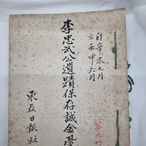 自辛未五月
至壬申六月
李忠武公遺蹟保存誠金臺
東亞日報社